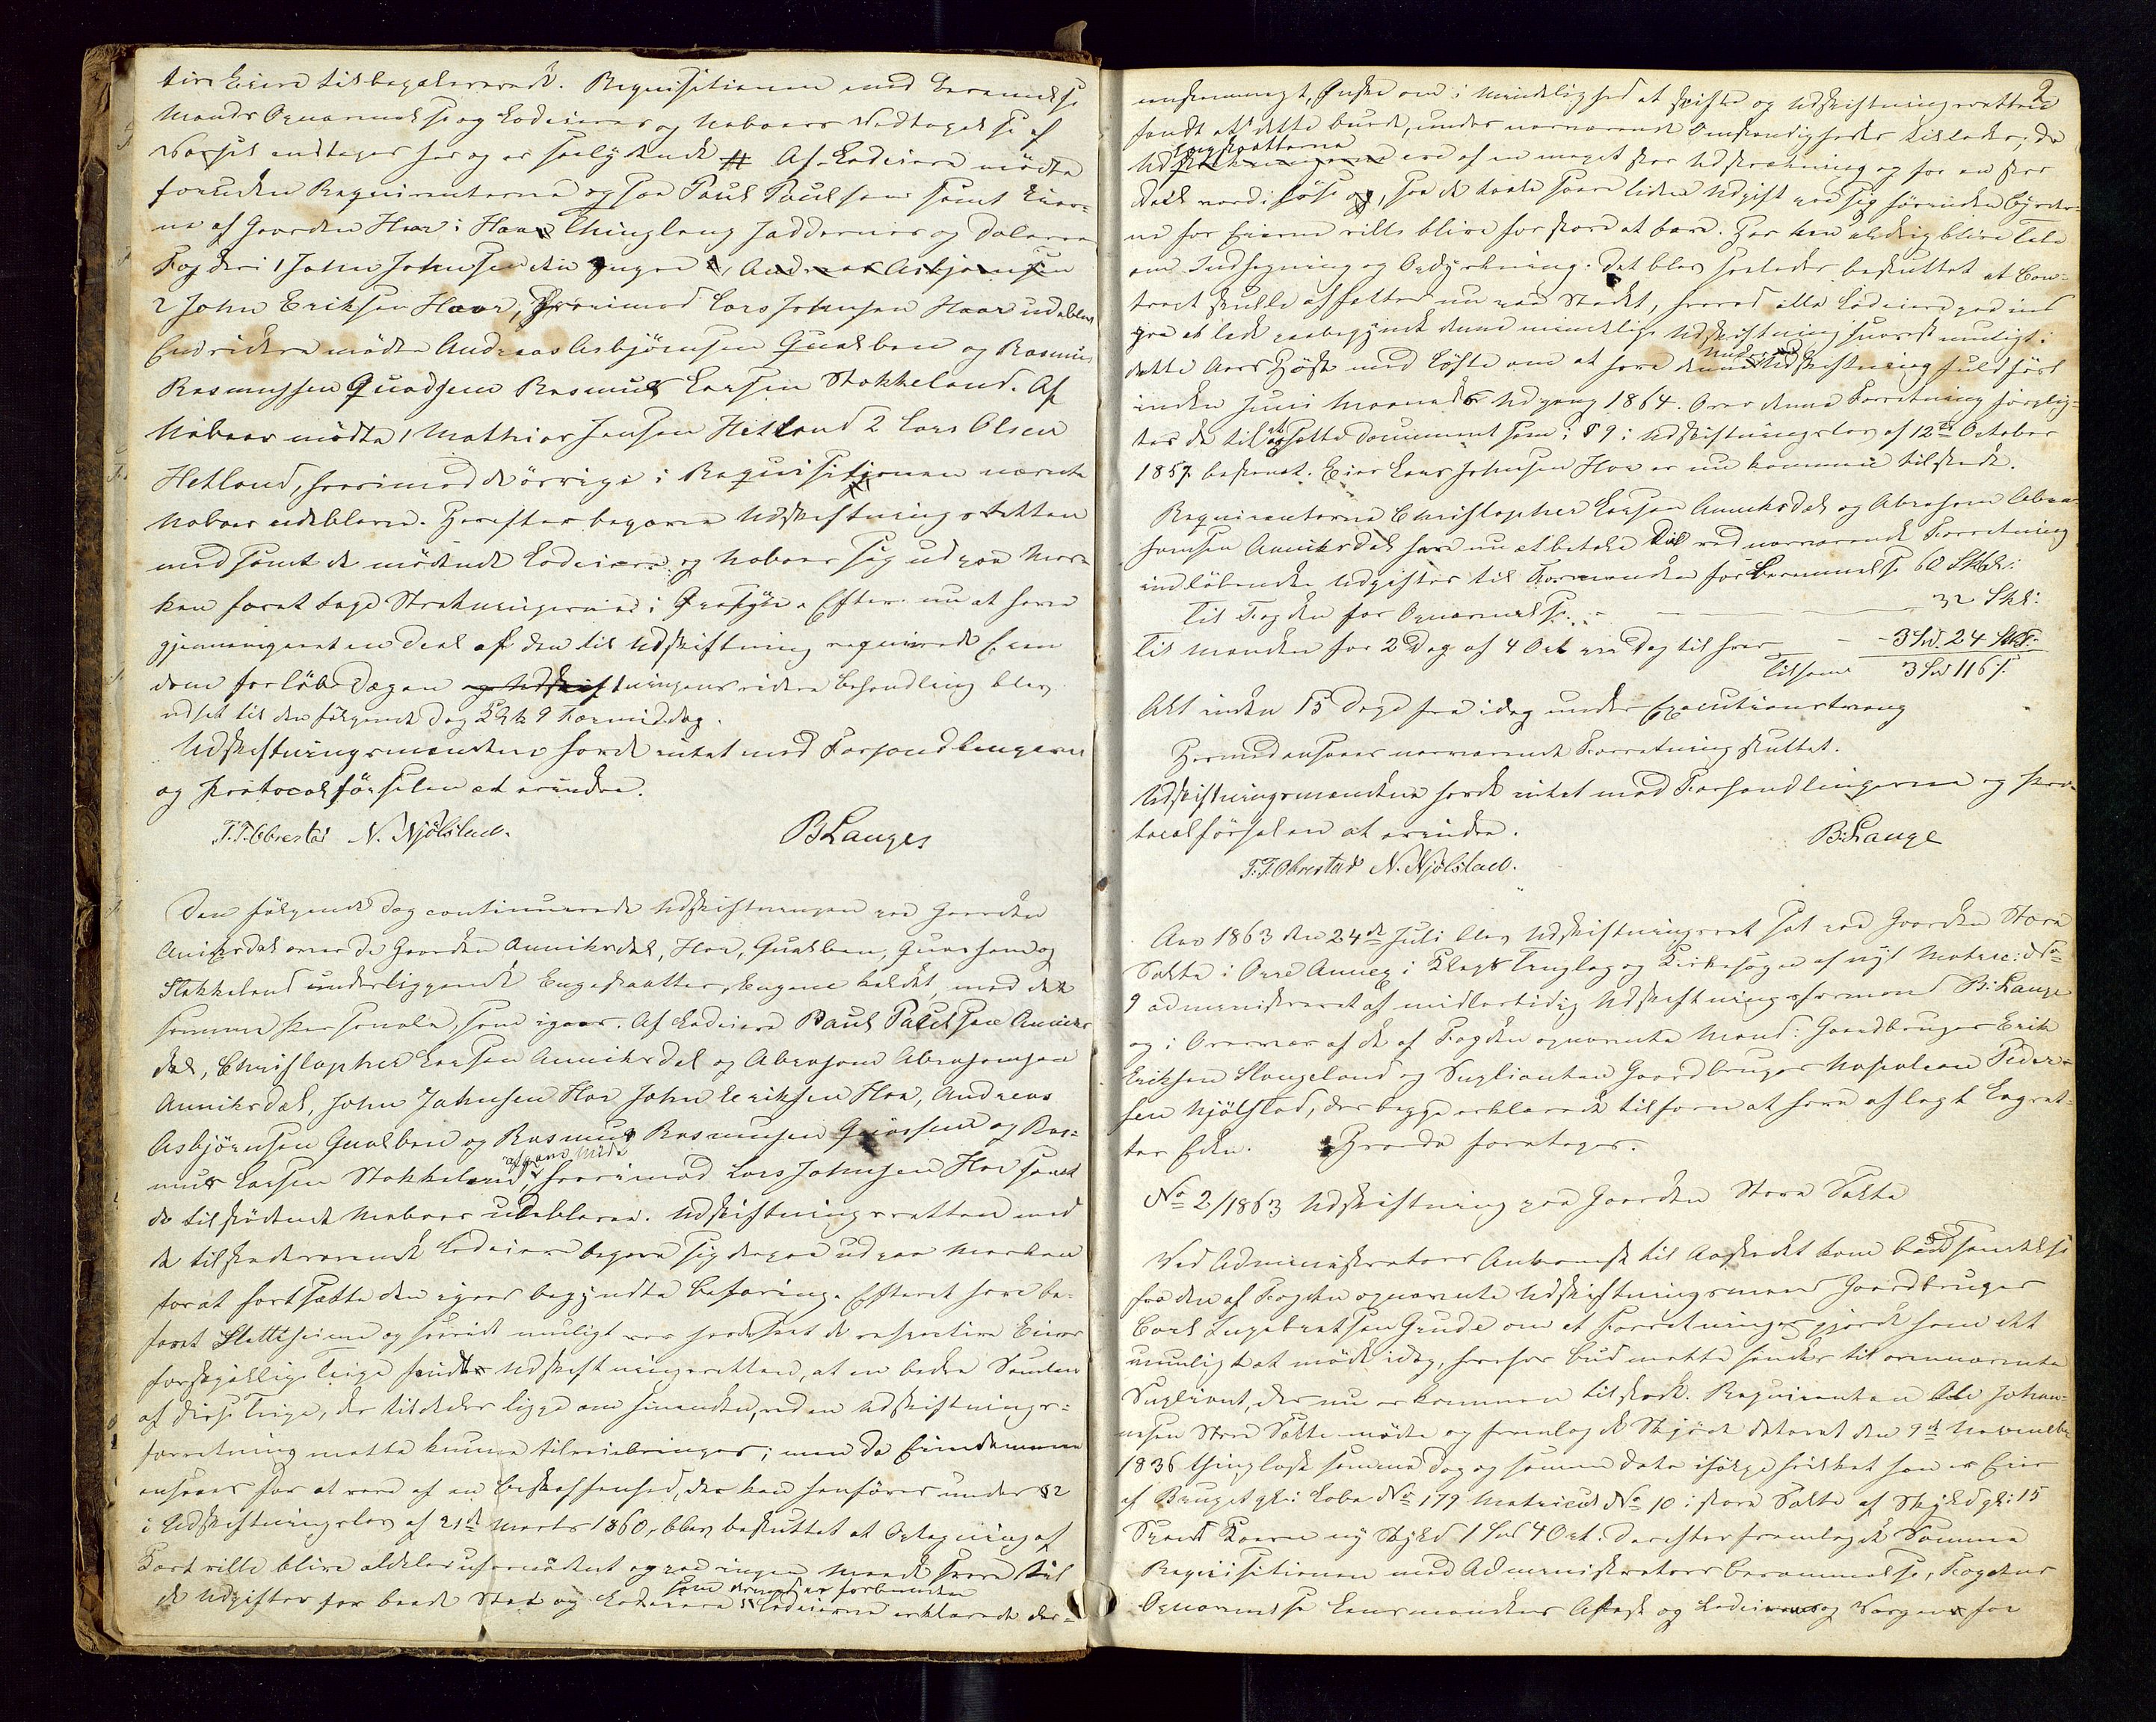 sine Eiere tilbageleveret. Requisitionen med Berammelse
Mænds Opnævnelse og Lodeieres og Naboers Vedtagelse af
Varsel indtages her og er saalydende # Af Lodeiere mødte
foruden Requirenterne og saa Paul Paulsen samt Eier-
ne af Gaarden Haar i Haa Thinglaug Jædderens og Dalernes
Fogderi 1 John Johnsen den yngre Andreas Asbjørnsen
2 John Eriksen Haar, hvorimod Lars Johnsen Haar udeblev
Endvidere mødte Andreas Asbjørnsen Qualbein og Rasmus
Rasmussen Quadsem Rasmus Larsen Stokkeland. Af
Naboer mødte 1 Mathias Jensen Hetland 2 Lars Olsen
Hetland, hvorimod de øvrige i Requisitionen nævnte
Naboer udebleve. Herefter begave Udskiftningsretten
med samt de mødende Lodeiere og Naboer sig ud paa Mar-
ken forat tage Strækningerne i Øiesyn. Efter nu at have
gjennemgaaet en Deel af den til Udskiftning requirerede Eien
dom forløb Dagen og Udskiftningens videre Behandling blev
udsat til den følgende Dag Kl. 9 Formiddag.
Udskiftningsmændene havde intet mod Forhandlingerne
og Protocolførselen at erindre.
T. T. Obrestad N. Njølstad. B Langes
Den følgende Dag continuerede Udskiftningen paa Gaarden
Aniksdal over de Gaarden Anniksdal, Haar, Qualbein, Quadsem og
Stokkeland underliggende Engeslaatter, Engene kaldet, med det
samme Personale, som igaar. Af Lodeiere Paul Paulsen Anniks
dal, Christopher Larsen Anniksdal og Abraham Abrahamsen
Anniksdal, John Johnsen Haar John Eriksen Haa, Andreas
Asbjørnsen Qualbein og Rasmus Rasmussen Quassem og Ras-
mus Larsen Stokkeland, hvorimod Lars Johnsen Haar samt
de tilstødende Naboer udebleve. Udskiftningsretten med
de tilstedeværende Lodeiere begave sig derpaa ud paa Marken
forat fortsætte den igaar begyndte Befaring. Efterat have be-
faret Slettheiene og saavidt muligt var havde seet de respective Eieres
forskjellige Teige fandt Udskiftningsretten, at en bedre Samlen
af disse Teige, der tildels ligge om hinanden, ved en Udskiftnings-
forretning maatte kunne tilveiebringes; men da Eiendommene
ansaaes for at være af en Beskaffenhed, der kan henføres under §2
i Udskiftningslov af 21de Marts 1860, blev besluttet at Optagning af
Kart ville blive aldeles ufornødent og paa ingen Maade svare til
som dermed er forbundne
de Udgifter for baade Stat og Lodeiere Lodeierne erklærede der-
2
enstemmigt, Ønske om i Mindelighed at skifte og Udskiftningsretten
fandt at dette burde, under nærværende Omstændigheder tillades; da
Engslaatterne
Udstrækningerne ere af en meget stor Udstrækning og for en stor
Deel værdiløse og, saa de taale saare liden Udgift paa sig førinden Byrder-
ne for Eierne ville blive for store at bære. Her kan aldrig blive Tale
om Indhegning og Opdyrkning. Det blev saaledes besluttet at Con-
tract skulle affattes nu paa Stedet, hvorved alle Lodeiere gad ind
paa at lade paabegynde denne mindelige Udskiftning snarest muligt i
dette Aars Høst med Løfte om at have denne Udskiftning fuldført
inden Juni Maaneds Udgang 1864. Over denne Forretning forplig-
tes de til at opsætte Document som i §9 i Udskiftningslov af 12te October
1857 befalet. Eier Lars Johnsen Haa er nu kommen tilstede.
Requirenterne Christopher Larsen Anniksdal og Abraham Abra-
hamsen Anniksdal have nu at betale de ved nærværende Forretning
indløbende Udgifter til Formanden for Berammelse 60 Skl:
Til Fogden for Opnævnelse 32 Skl:
Til Mænden for 2 Dage af 4 Ort pr Dag til hver 3 Spd. 24 Skl:
Tilsam 3 Spd 116 s.
Alt inden 15 Dage fra idag under Executionstvang
Hermed ansaaes nærværende Forretning sluttet.
Udskiftningsmændene havde intet mod Forhandlingerne og Pro-
tocolførselen at erindre. B. Lange
T. T. Obrestad N. Njølstad.
Aar 1863 den 24de Juli blev Udskiftningsret sat paa Gaarden Store
Salte i Orre Annex i Klepp Tinglag og Kirkesogn af nyt Matric: No
9 administreret af midlertidig Udskiftningsformand B: Lange
og i Overvær af de af Fogden opnævnte Mænd: Gaardbruger Erik
Eriksen Haugeland og Suplianten Gaardbruger Napoleon Peder-
sen Njølstad, der begge erklærede tilforn at have aflagt Lagret-
tes Eden. Hvorda foretoges.
No 2/1863 Udskiftning paa Gaarden Store Salte
Ved Administrators Ankomst til Aastedet kom Bud samtidlig
fra den af Fogden opnævnte Udskiftningsmand Gaardbruger
Carl Ingebretsen Grude om at Forretninger gjorde ham det
umuligt at møde idag, hvorfor Bud maatte sendes til ovennævnte
Supliant, der nu er kommen tilstede. Requirenten Ole Johan-
nesen Store Salte mødte og fremlagde Skjøde dateret den 9de November
1836 thinglæst samme Dag og samme Dato ifølge hvilket han er Eier
af Bruget gl: Løbe No 179 Matricul No 10 i store Salte af Skyld gl: 15
Spand Korn ny Skyld 1 Spd 4 Ort. Derefter fremlagde Samme
Requisitionen med Administrators Berammelse, Fogdens
Opnævnelse Lensmandens Attest og Lodeiernes og Vergens for